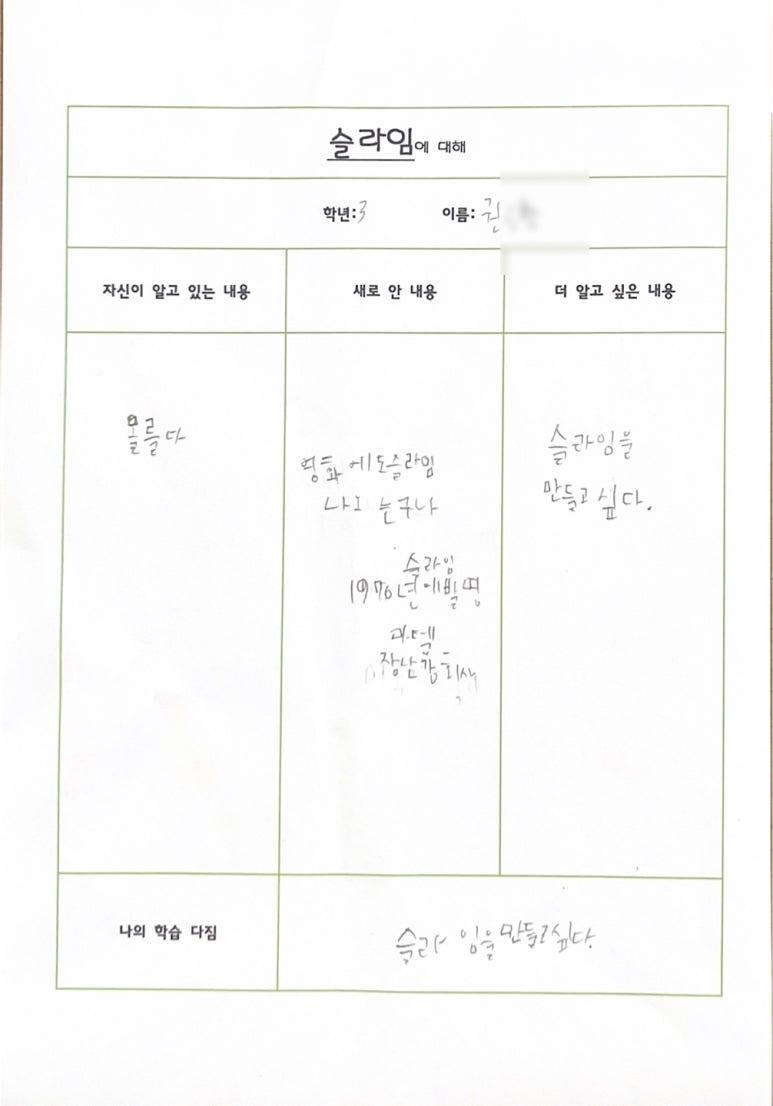 슬라임에 대해
학년:3 이름: 권
자신이 알고 있는 내용 새로 안 내용 더 알고 싶은 내용
몰른다
영화에도슬라임
나오는구나
슬라임
1976년에발명
마텔
장난감회사
슬라임을
만들고 싶다.
나의 학습 다짐
슬라임을만들고싶다.